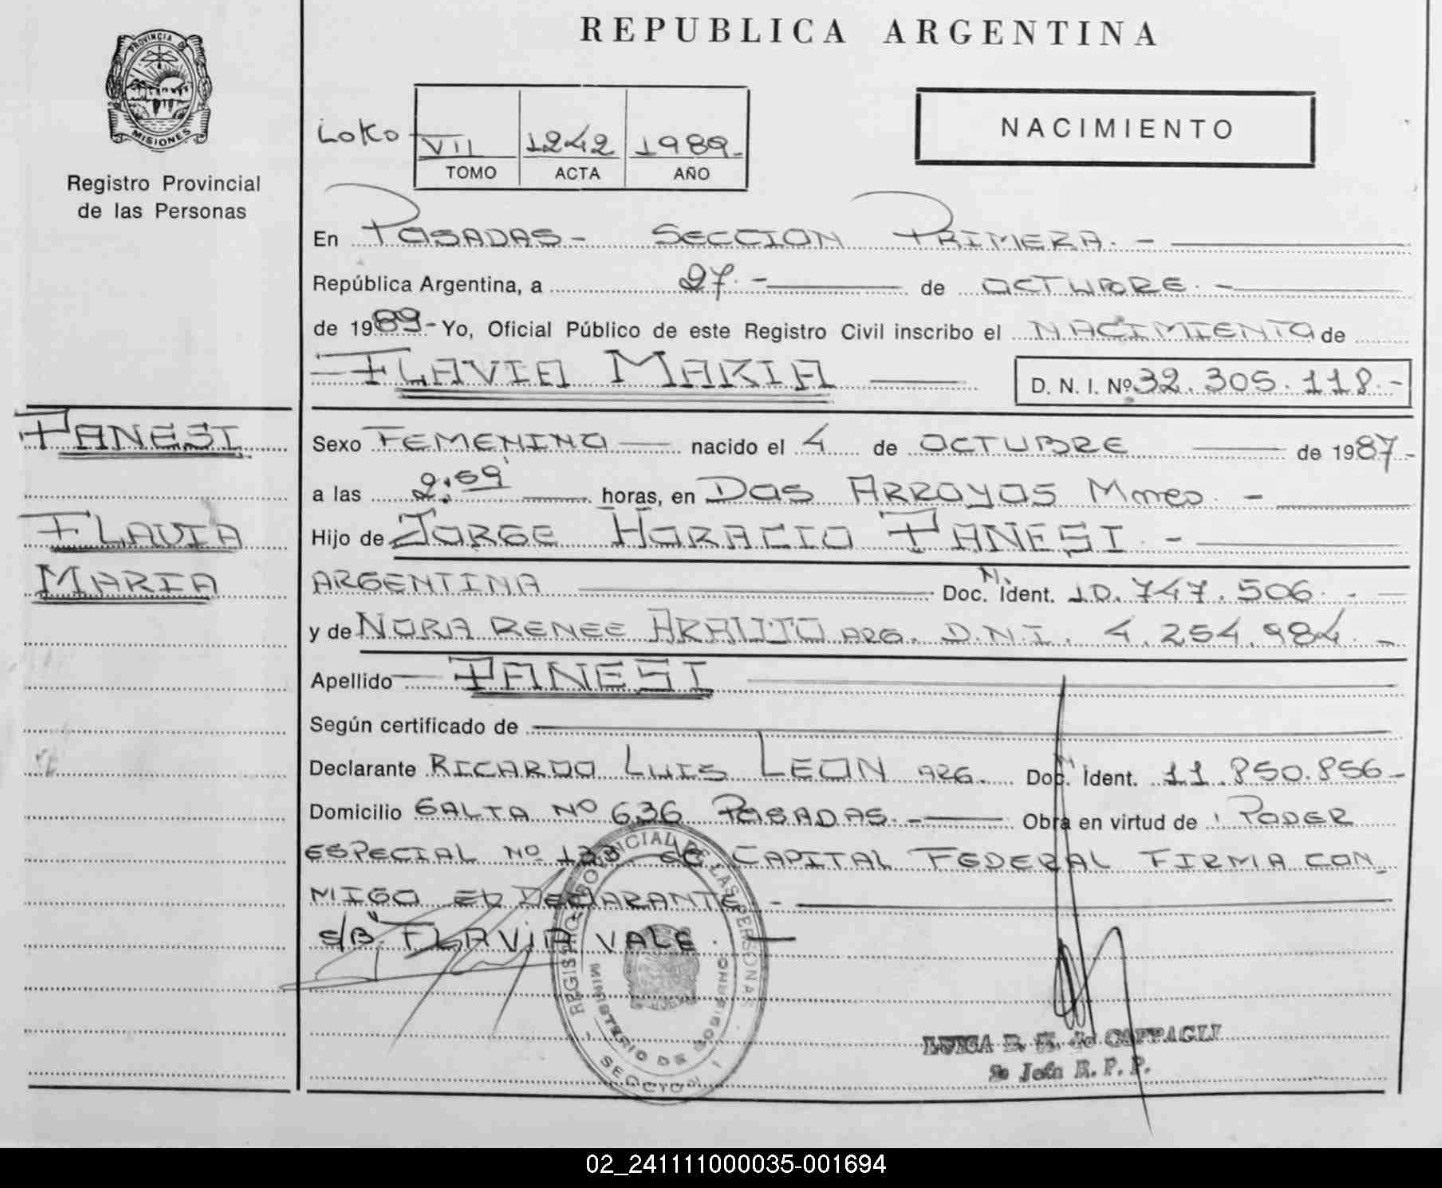 REPUBLICA ARGENTINA
PROVINCIA DE
MISIONES
Registro Provincial
de las Personas
NACIMIENTO
VII 1242 1989-
TOMO ACTA AÑO
En POSADAS - SECCION PRIMERA. -
República Argentina, a 27. - de OCTUBRE. -
de 1989- Yo, Oficial Público de este Registro Civil inscribo el NACIMIENTO de
FLAVIA MARIA D. N. I. Nº 32.305.118.-
PANESI
FLAVIA
MARIA
Sexo FEMENINO nacido el 4 de OCTUBRE de 1987.-
a las horas, en DOS ARROYOS -
Hijo de JORGE HORACIO PANESI. -
ARGENTINA Doc. M. Ident. 10.747.506. -
y de NORA RENEE ARAUJO ARG. D.N.I. 4.254.984. -
Apellido PANESI
Según certificado de
Declarante RICARDO LUIS LEON ARG. Doc. Ident. 11.850.856-
Domicilio SALTA Nº 636 POSADAS. - Obra en virtud de : PODER
ESPECIAL Nº CAPITAL FEDERAL FIRMA CON
MIGO EL DECLARANTE -
S/B. FLAVIA VALE. -
REGISTRO PROVINCIAL DE LAS PERSONAS
MINISTERIO DE GOBIERNO
SECCION 1
LUISA
R. P. P.
02_241111000035-001694